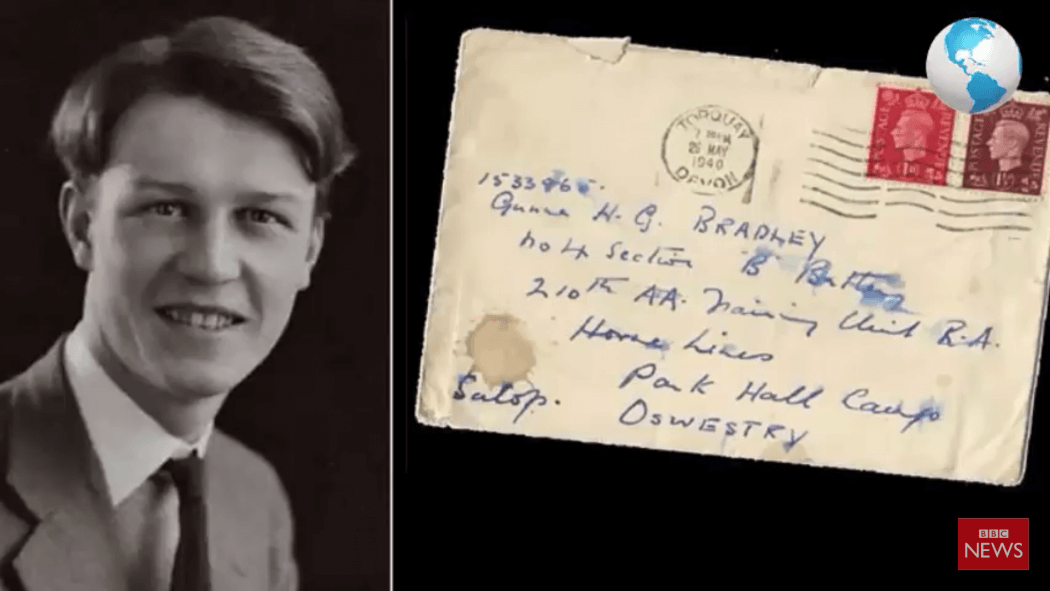 TORQUAY
26 MAY
1940
DEVON
POSTAGE REVENUE
POSTAGE REVENUE
Gunner H. G. BRADLEY
No 4 Section 'B' Battery
210th AA. Training Unit R.A.
Horne Lines
Park Hall Camp
OSWESTRY
Salop.
BBC
NEWS